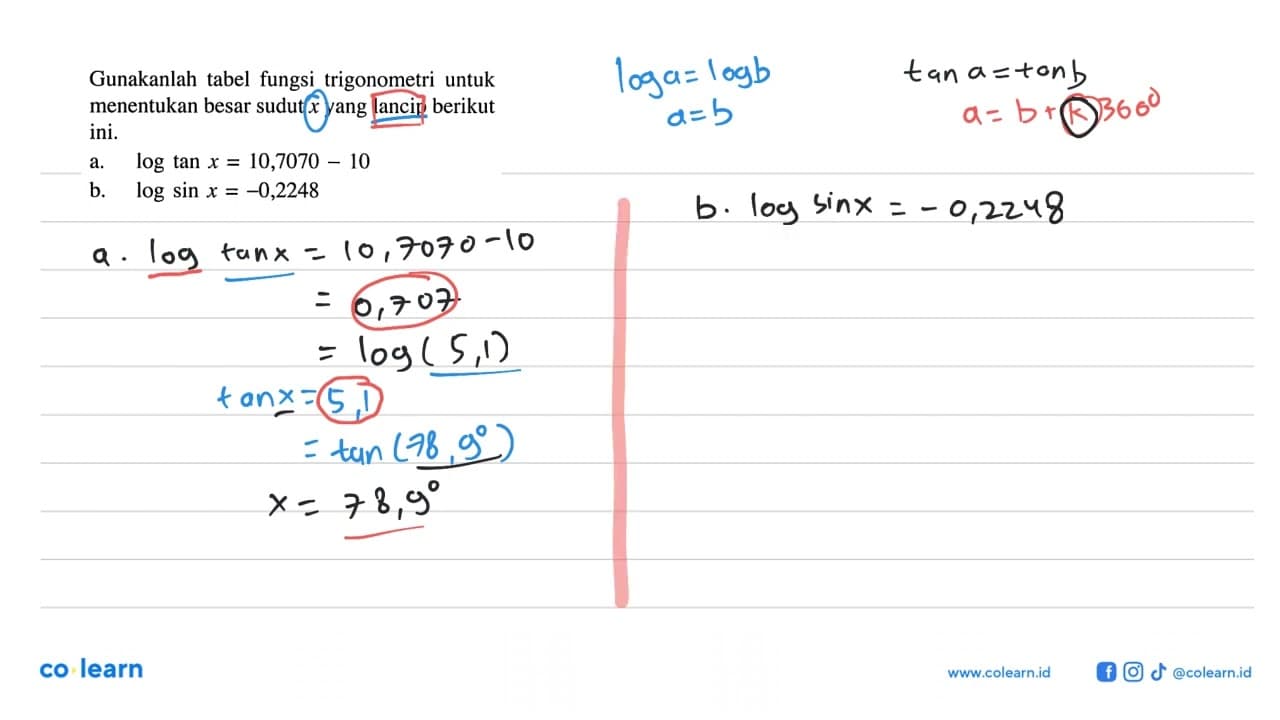 Gunakanlah tabel fungsi trigonometri untuk
menentukan besar sudut x yang lancip berikut
ini.
a. log tan x = 10,7070 – 10
b. log sin x = –0,2248
log a = log b
a = b
tan a = tan b
a = b + k 360°
a. log tan x = 10,7070 - 10
= 0,707
= log ( 5,1 )
tan x = 5,1
= tan (78,9°)
x = 78,9°
b. log sin x = - 0,2248
co learn
www.colearn.id
@colearn.id